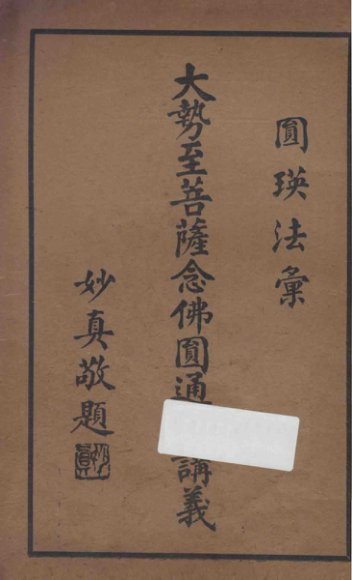 圓瑛法彙
大勢至菩薩念佛圓通講義
妙真敬題